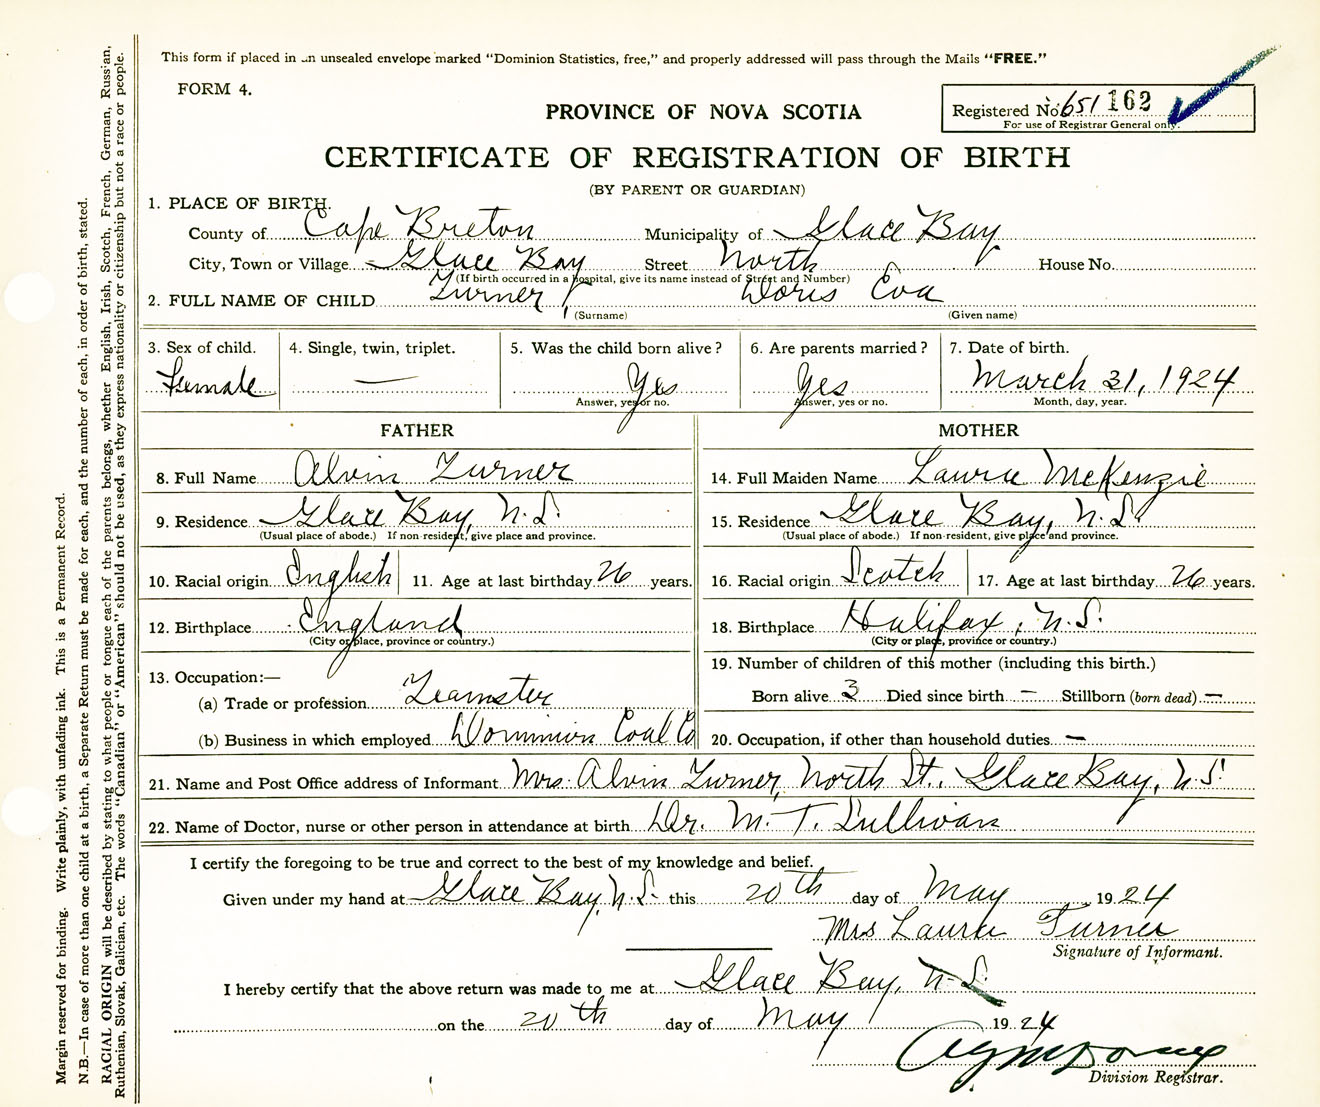 This form if placed in an unsealed envelope marked "Dominion Statistics, free," and properly addressed will pass through the Mails "FREE."
FORM 4.
Registered No. 651 162
For use of Registrar General only.
PROVINCE OF NOVA SCOTIA
CERTIFICATE OF REGISTRATION OF BIRTH
(BY PARENT OR GUARDIAN)
1. PLACE OF BIRTH.
County of Cape Breton Municipality of Glace Bay
City, Town or Village Glace Bay Street North House No.
(If birth occurred in a hospital, give its name instead of Street and Number)
2. FULL NAME OF CHILD Turner, Doris Eva
(Surname) (Given name)
3. Sex of child. 4. Single, twin, triplet. 5. Was the child born alive? 6. Are parents married? 7. Date of birth.
Female — Yes Yes March 31, 1924
Answer, yes or no. Answer, yes or no. Month, day, year.
FATHER MOTHER
8. Full Name Alvin Turner 14. Full Maiden Name Laura McKenzie
9. Residence Glace Bay, N.S. 15. Residence Glace Bay, N.S.
(Usual place of abode.) If non-resident, give place and province. (Usual place of abode.) If non-resident, give place and province.
10. Racial origin English 11. Age at last birthday 26 years. 16. Racial origin Scotch 17. Age at last birthday 26 years.
12. Birthplace England 18. Birthplace Halifax, N.S.
(City or place, province or country.) (City or place, province or country.)
13. Occupation:— 19. Number of children of this mother (including this birth.)
(a) Trade or profession Teamster Born alive 3 Died since birth — Stillborn (born dead) —
(b) Business in which employed Dominion Coal Co 20. Occupation, if other than household duties —
21. Name and Post Office address of Informant Mrs. Alvin Turner, North St., Glace Bay, N.S.
22. Name of Doctor, nurse or other person in attendance at birth Dr. M. T. Sullivan
I certify the foregoing to be true and correct to the best of my knowledge and belief.
Given under my hand at Glace Bay, N.S. this 20th day of May 1924
Mrs Laura Turner
Signature of Informant.
I hereby certify that the above return was made to me at Glace Bay, N.S.
on the 20th day of May 1924
Division Registrar.
Margin reserved for binding. Write plainly, with unfading ink. This is a Permanent Record.
N.B.—In case of more than one child at a birth, a Separate Return must be made for each, and the number of each, in order of birth, stated.
RACIAL ORIGIN will be described by stating to what people or tongue each of the parents belongs, whether English, Irish, Scotch, French, German, Russian,
Ruthenian, Slovak, Galician, etc. The words "Canadian" or "American" should not be used, as they express nationality or citizenship but not a race or people.